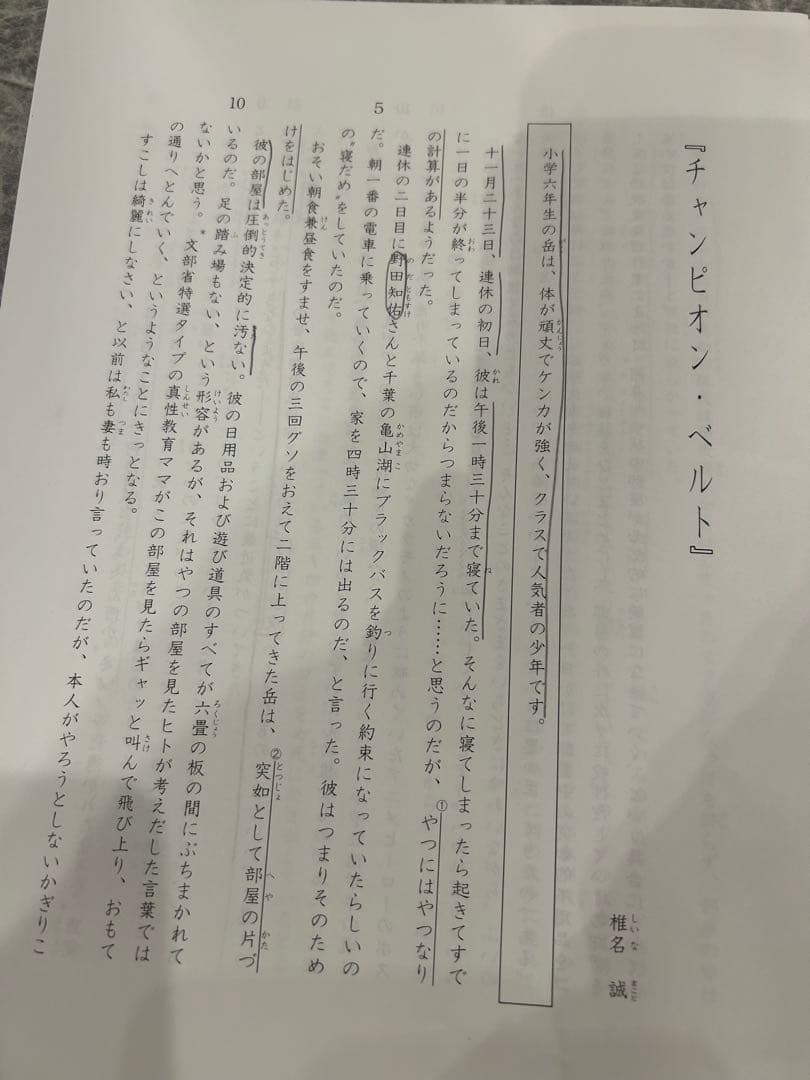 『チャンピオン・ベルト』
椎名 誠
小学六年生の岳は、体が頑丈でケンカが強く、クラスで人気者の少年です。
十一月二十三日、連休の初日、彼は午後一時三十分まで寝ていた。そんなに寝てしまったら起きてすで
に一日の半分が終ってしまっているのだからつまらないだろうに……と思うのだが、①やつにはやつなり
の計算があるようだった。
連休の二日目に野田知佑さんと千葉の亀山湖にブラックバスを釣りに行く約束になっていたらしいの
5
だ。朝一番の電車に乗っていくので、家を四時三十分には出るのだ、と言った。彼はつまりそのため
の〝寝だめ〟をしていたのだ。
おそい朝食兼昼食をすませ、午後の三回グソをおえて二階に上ってきた岳は、②突如として部屋の片づ
けをはじめた。
彼の部屋は圧倒的決定的に汚ない。彼の日用品および遊び道具のすべてが六畳の板の間にぶちまかれて
10
いるのだ。足の踏み場もない、という形容があるが、それはやつの部屋を見たヒトが考えだした言葉では
ないかと思う。*文部省特選タイプの真性教育ママがこの部屋を見たらギャッと叫んで飛び上り、おもて
の通りへとんでいく、というようなことにきっとなる。
すこしは綺麗にしなさい、と以前は私も妻も時おり言っていたのだが、本人がやろうとしないかぎりこ